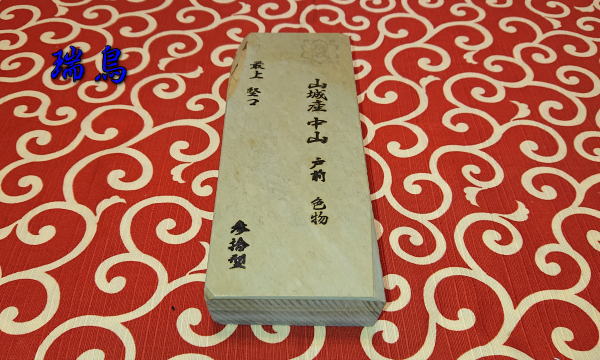 瑞鳥
山城産 中山 戸前 色物
最上 堅口
参拾型